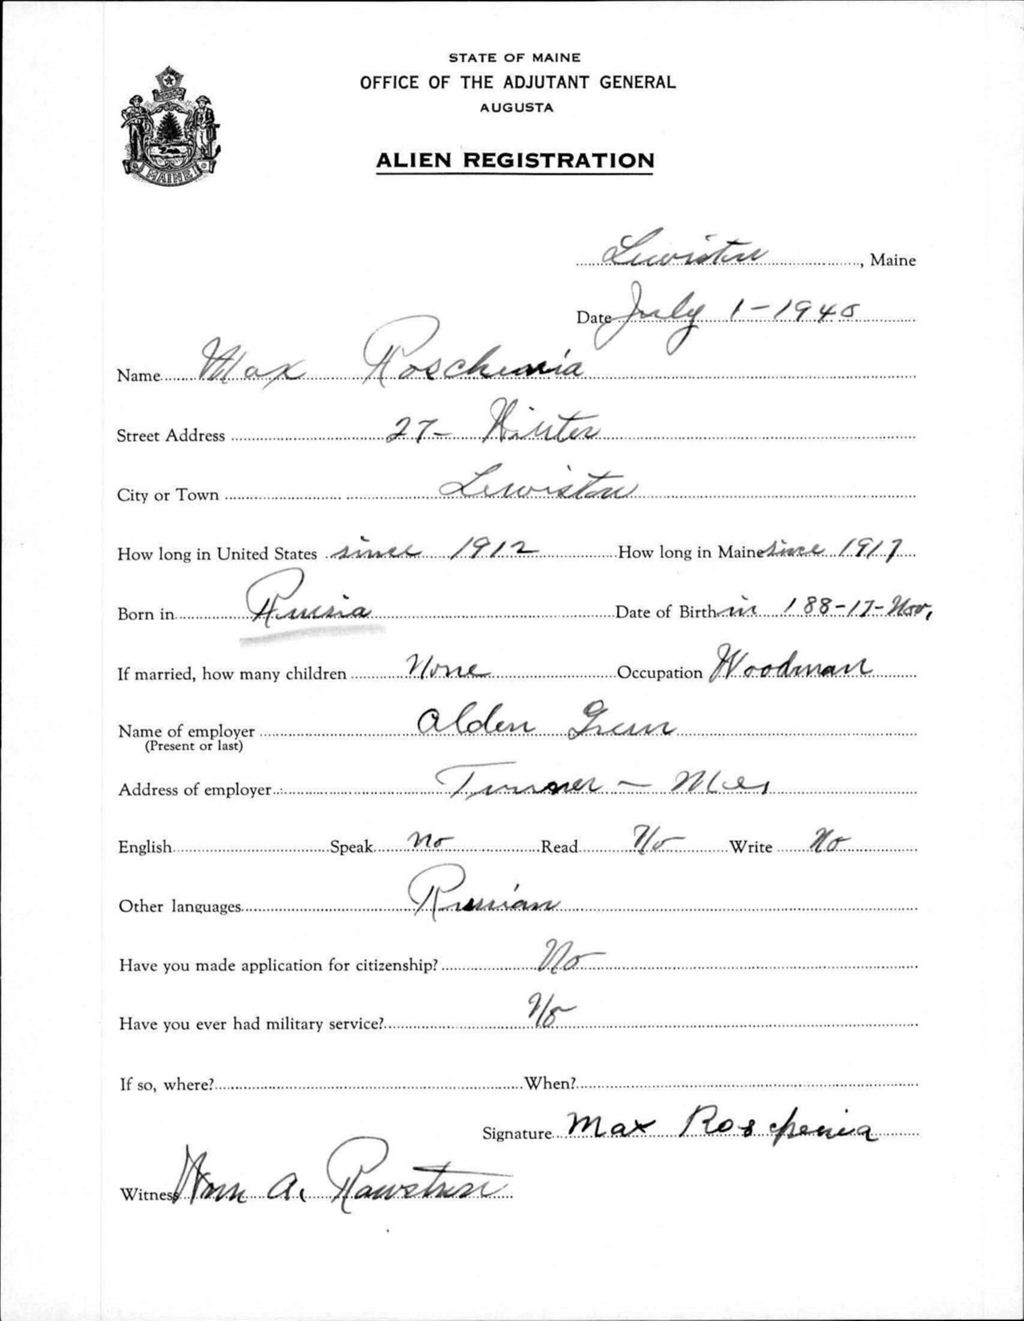 STATE OF MAINE
OFFICE OF THE ADJUTANT GENERAL
AUGUSTA
ALIEN REGISTRATION
MAINE
Lewiston, Maine
Date July 1-1940
Name Max Roschenia
Street Address 27- Winter
City or Town Lewiston
How long in United States since 1912 How long in Maine since 1917
Born in Russia Date of Birth in 188-17-Nov,
If married, how many children None Occupation Woodman
Name of employer Alden
(Present or last)
Address of employer Turner - Me,
English Speak No Read No Write No
Other languages Russian
Have you made application for citizenship? No
Have you ever had military service? No
If so, where? When?
Signature Max Roschenia
Witness A.